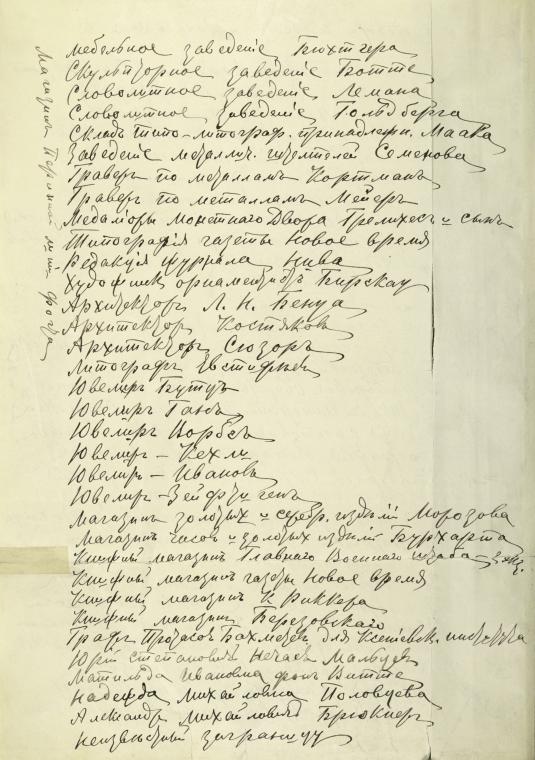 мебельное заведеніе Бюхтгера
Скульпторное заведеніе Ботте
Словолитное заведеніе Лемана
Словолитное заведеніе Гольдберга
Складъ типо-литограф. принадлежн. Маака
Заведеніе металлич. штемпелей Семенова
Граверъ по металламъ Кортманъ
Граверъ по металламъ Мейеръ
Медальеры монетнаго Двора Грилихесъ и сынъ
Типографія газеты Новое время
Редакція журнала Нива
Художникъ орнаментистъ Бирскау
Архитекторъ Л. Н. Бенуа
Архитекторъ Костяковъ
Архитекторъ Сюзоръ
Литографъ Евстифѣевъ
Ювелиръ Бутцъ
Ювелиръ Ганъ
Ювелиръ
Ювелиръ – Кехли
Ювелиръ – Ивановъ
Ювелиръ – Зейфтигенъ
Магазинъ золотыхъ и серебр. издѣлій Морозова
Магазинъ часовъ и золотыхъ издѣлій Бурхарта
Книжный магазинъ Главнаго Военнаго штаба – 3 экз.
Книжный магазинъ газеты Новое время
Книжный магазинъ К Риккера
Книжный магазинъ Березовскаго
Графъ Протасовъ Бахметевъ для Ксеніевск. института
Юрій Степановичъ Нечаевъ Мальцевъ
Матильда Ивановна фонъ Витте
Надежда Михайловна Половцева
Александръ Михайловичъ Брюкнеръ
неизвѣстный заграницу
Магазинъ